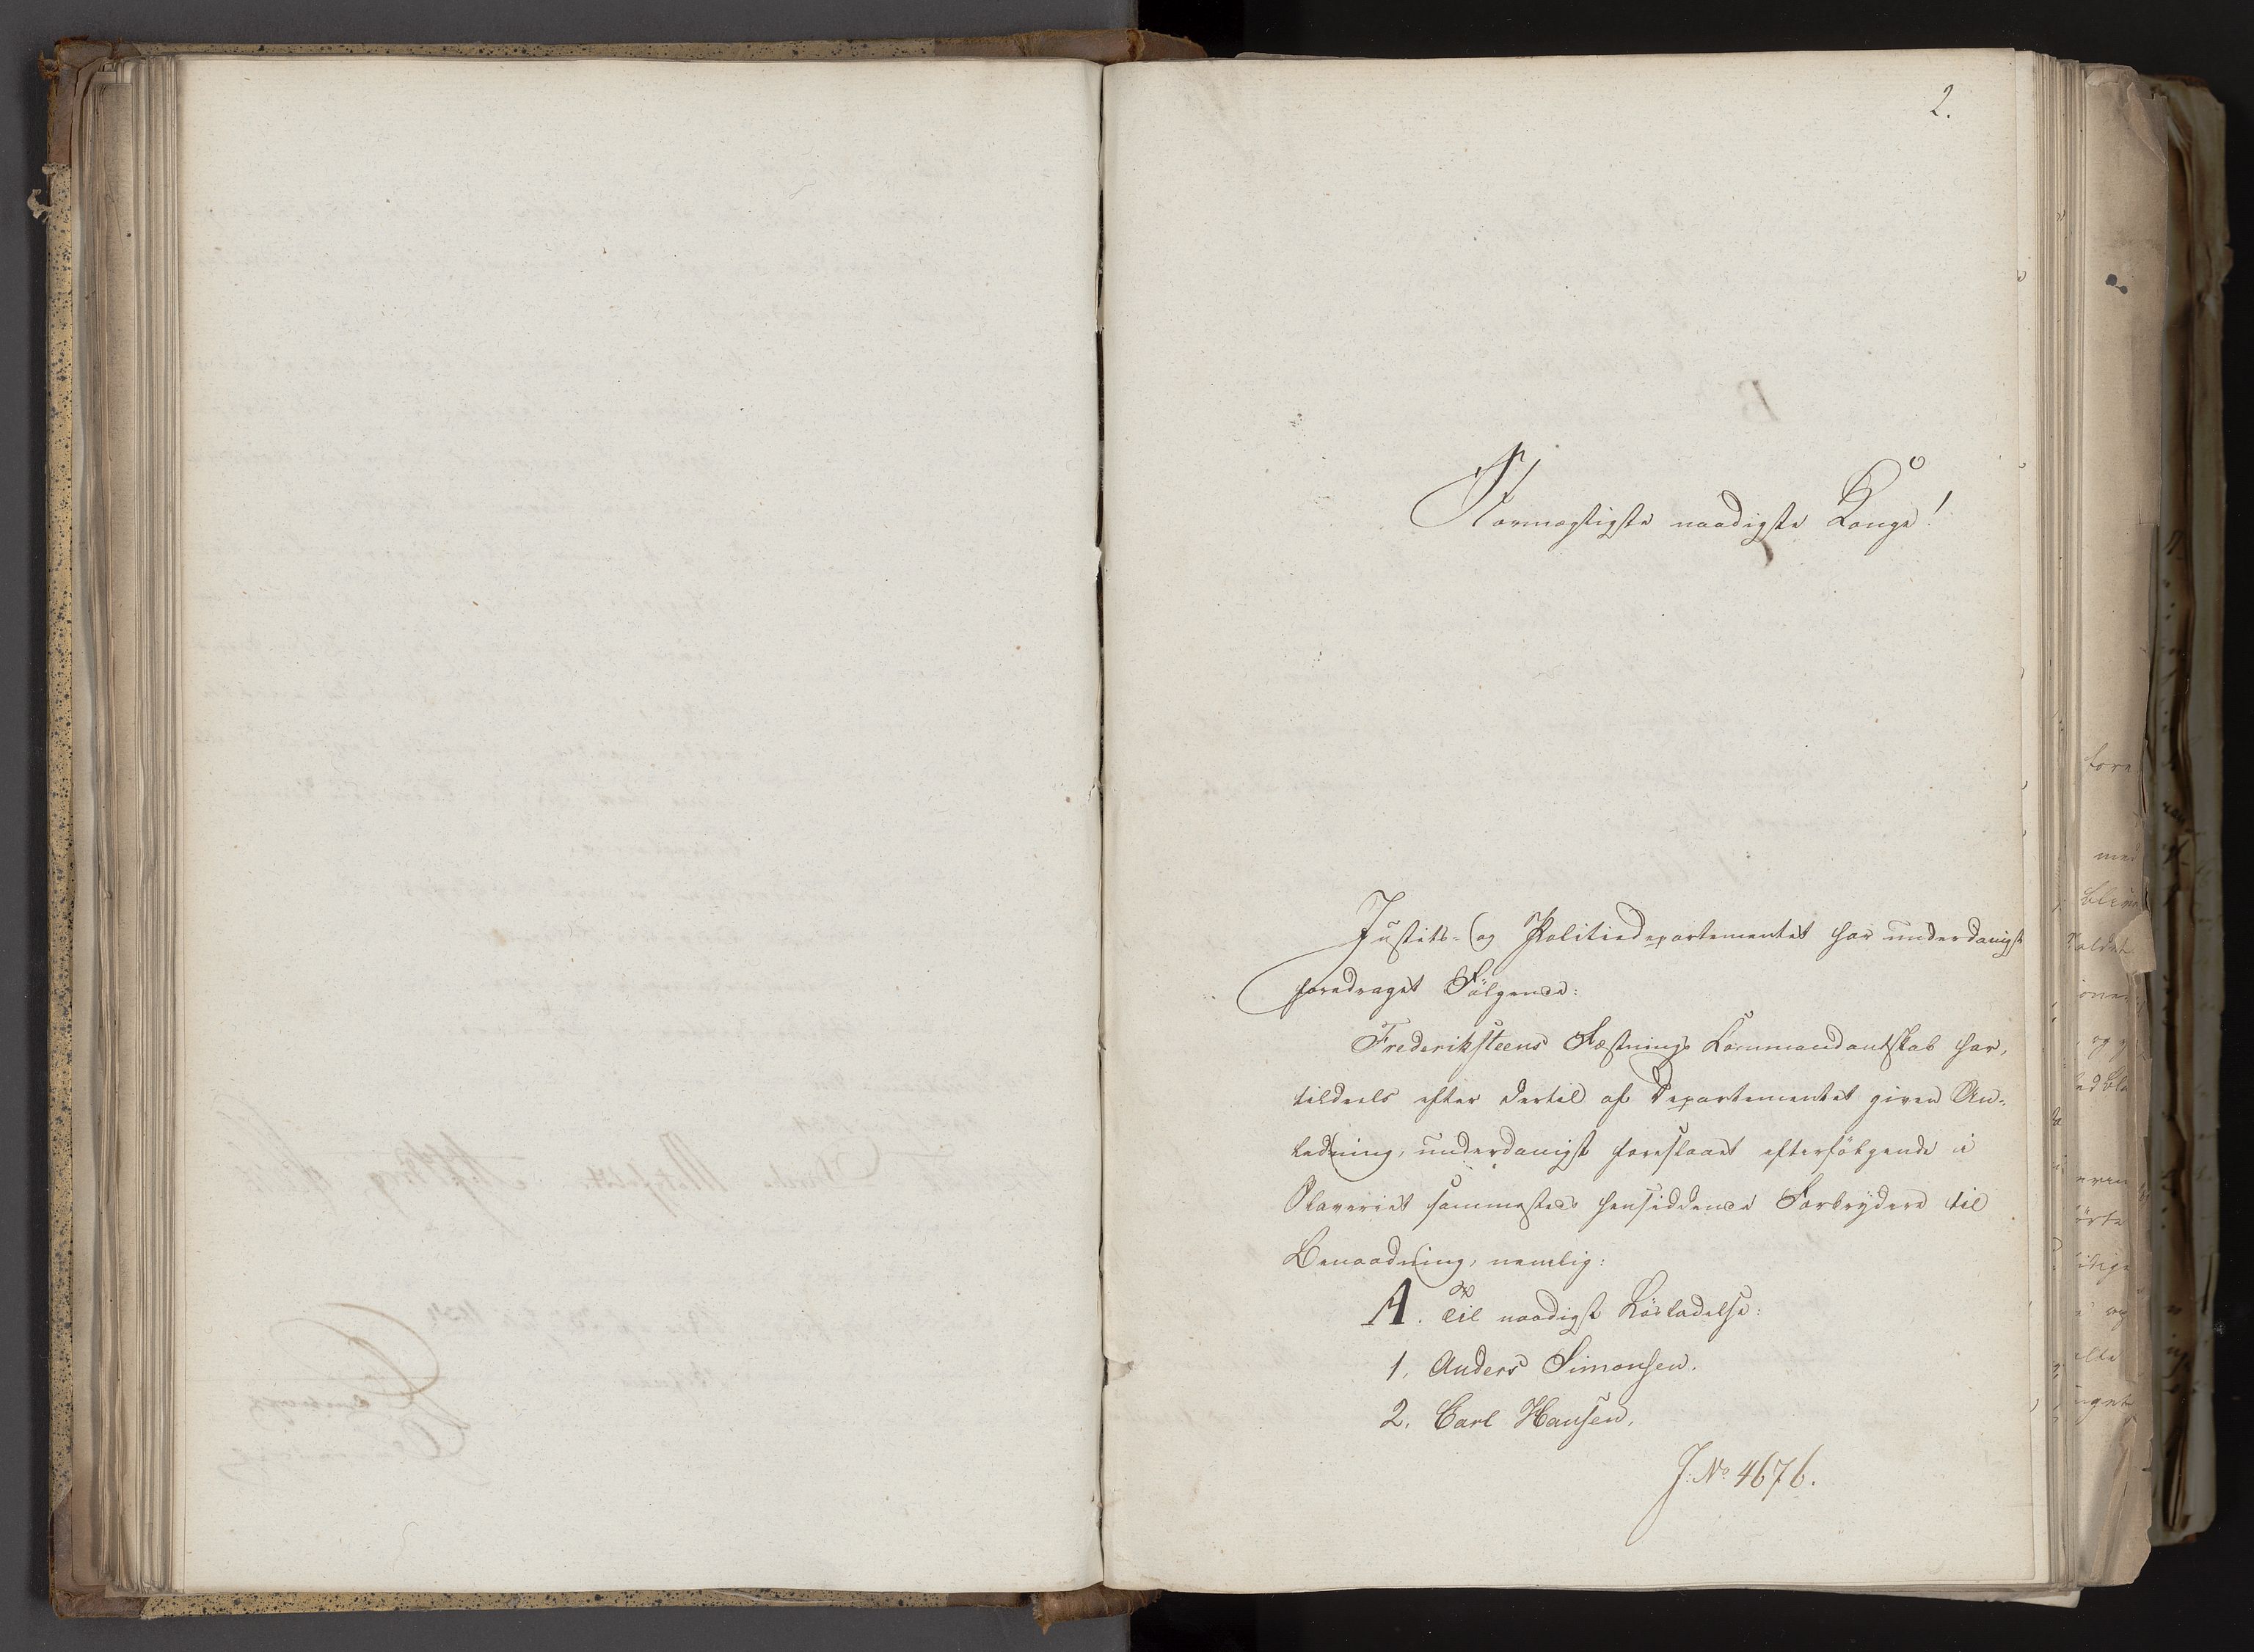 2.
Stormægtigste naadigste Konge!
Justits- og Politiedepartementet har underdanigst
foredraget Følgende:
Frederiksteens Fæstnings Kommandantskab har,
tildeels efter dertil af Departementet given An-
ledning, underdanigst foreslaaet efterfølgende i
Slaveriet sammesteds hensiddende Forbrydere til
Benaadning, nemlig:
A. Til naadigst Løsladelse:
1, Anders Simonsen.
2. Carl Hansen.
J. No 4676.